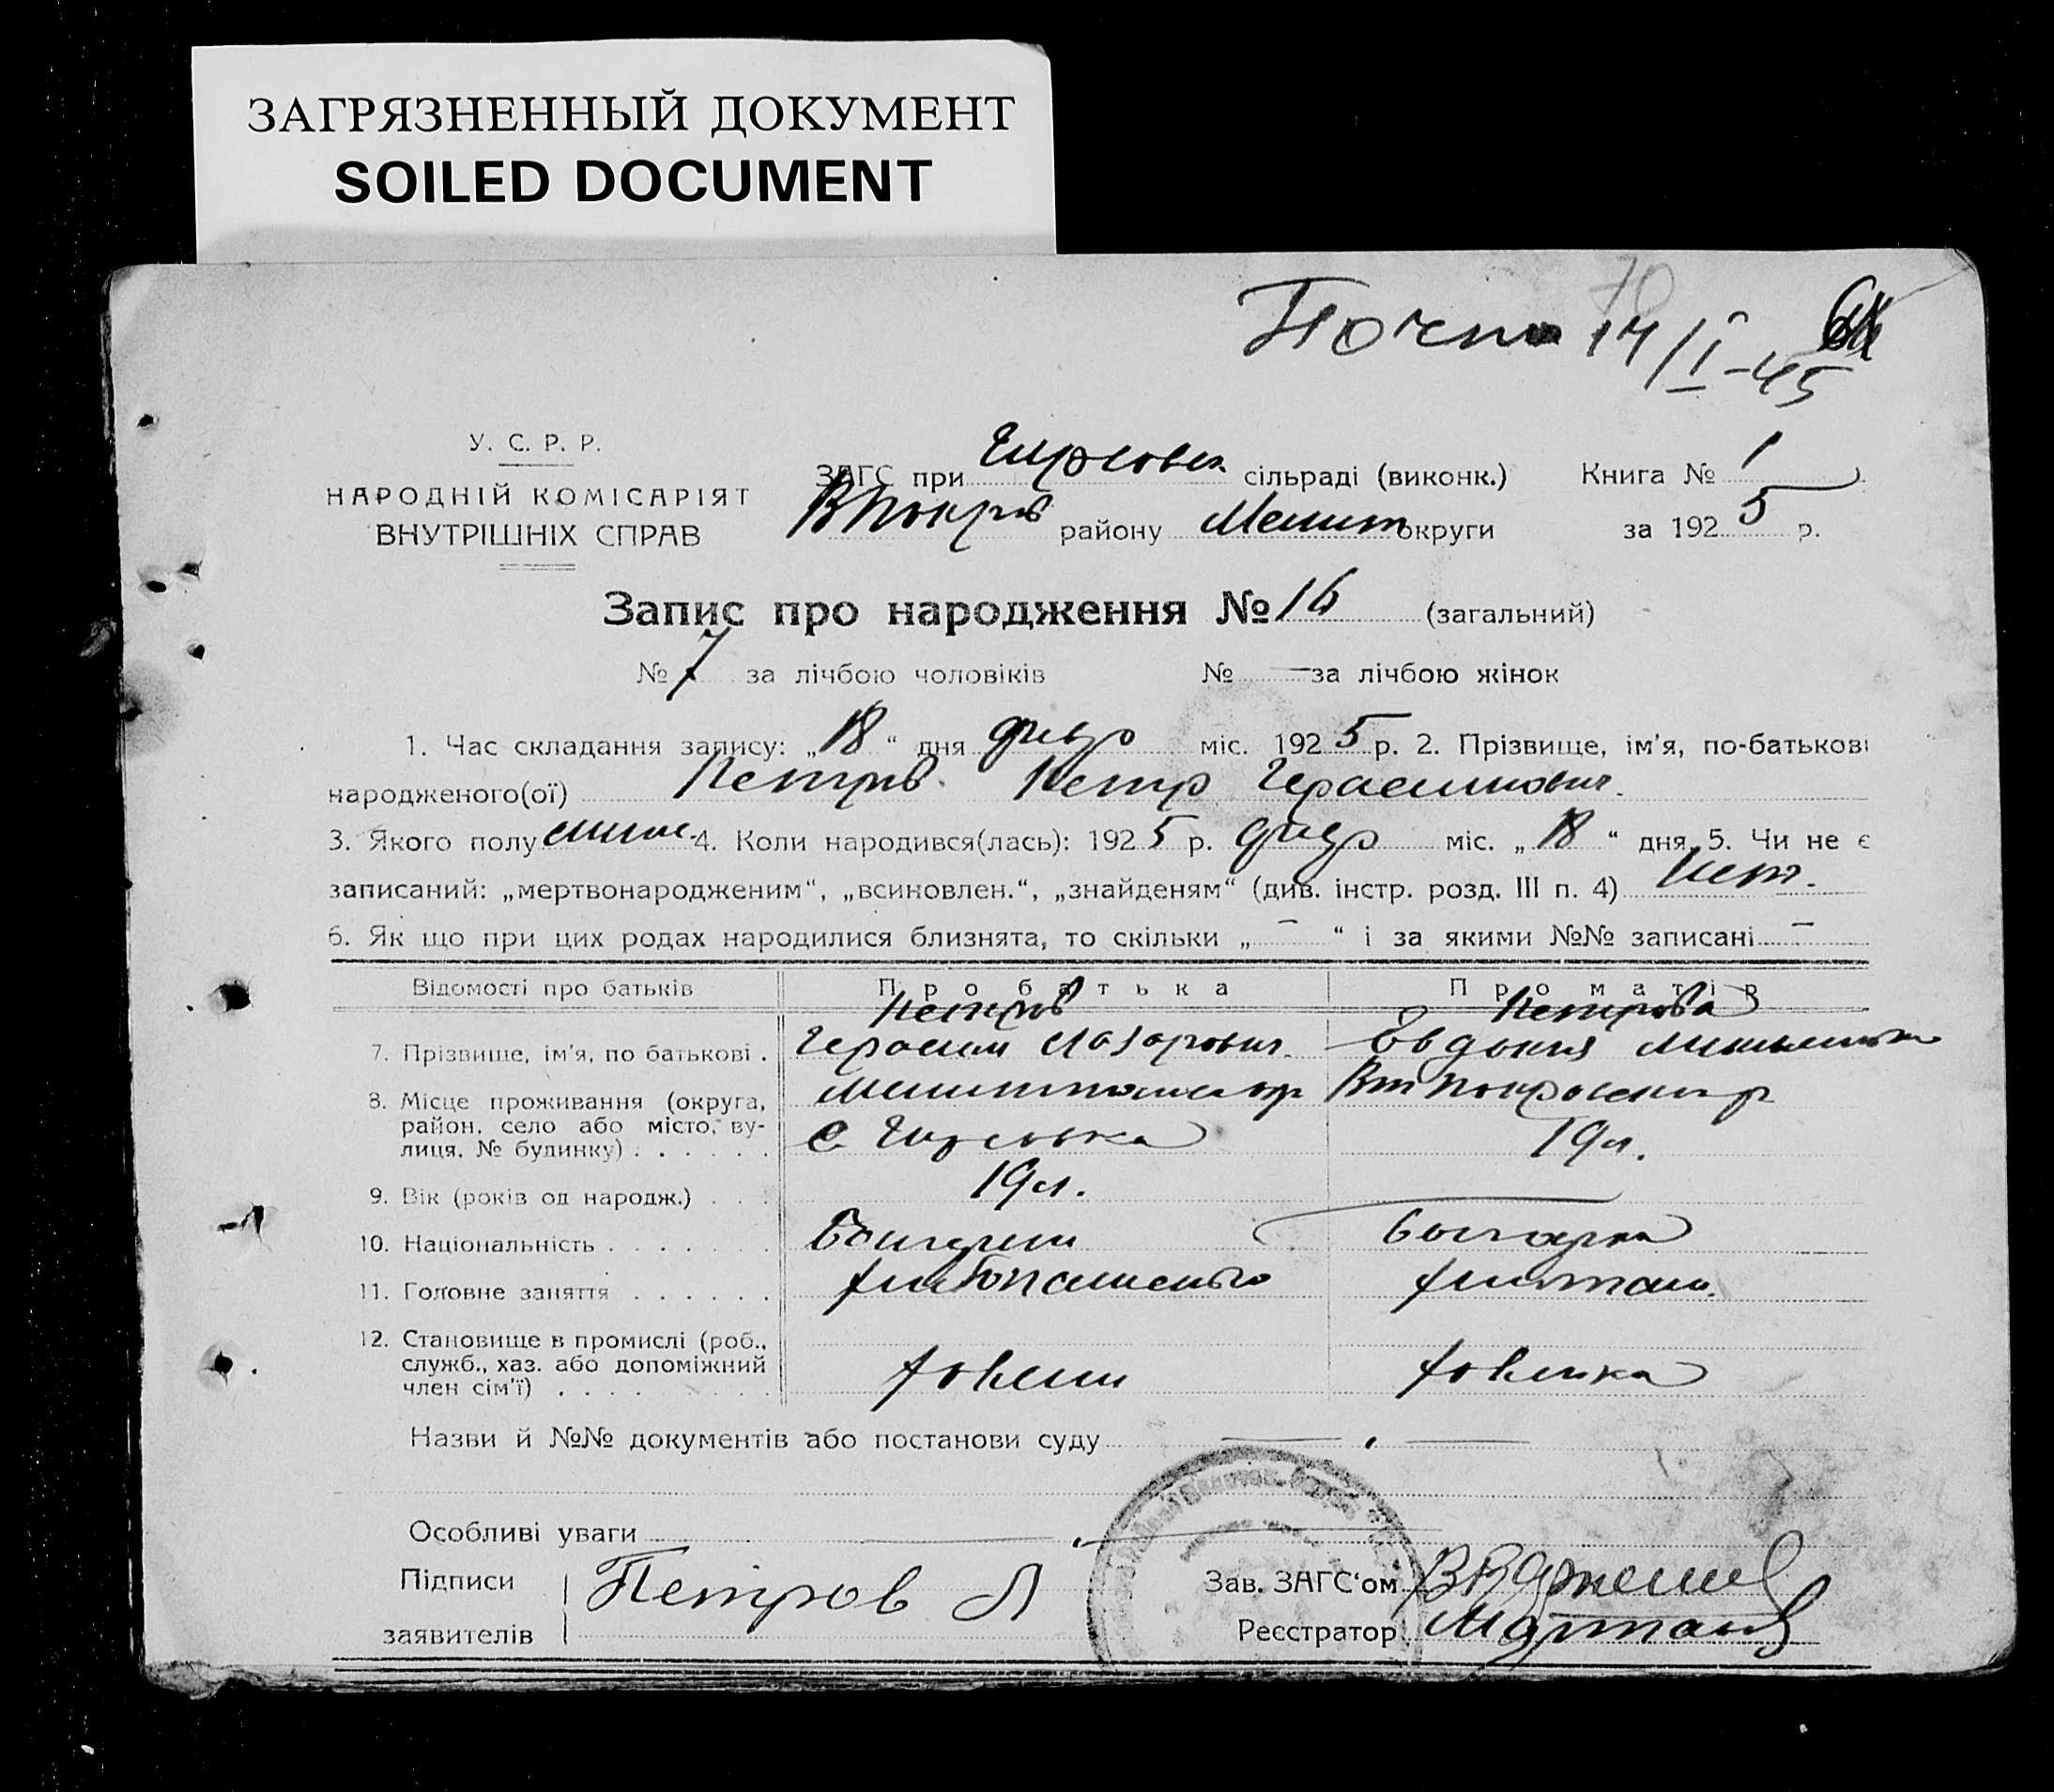 ЗАГРЯЗНЕННЫЙ ДОКУМЕНТ
SOILED DOCUMENT
70
14/I-45
У. С. Р. Р.
НАРОДНІЙ КОМІСАРІЯТ
ВНУТРІШНІХ СПРАВ
ЗАГС при Гирсовск. сільраді (виконк.) Книга № 1
В Покров району Мелит округи за 1925 р.
Запис про народження № 16 (загальний)
№ 7 за лічбою чоловіків № — за лічбою жінок
1. Час складання запису: „18“ дня февр міс. 1925 р. 2. Прізвище, ім'я, по-батькові
народженого(ої) Петров Петр Герасимович.
3. Якого полу 4. Коли народився(лась): 1925 р. февр міс. „18“ дня, 5. Чи не є
записаний: „мертвонародженим“, „всиновлен.“, „знайденям“ (див. інстр. розд. III п. 4) Нет.
6. Як що при цих родах народилися близнята, то скільки „—“ і за якими №№ записані —
Відомості про батьків Про батька Про матір
Петров Петрова
7. Прізвище, ім'я, по батькові . Герасим Лазарович. Евдокия
8. Місце проживання (округа,
район, село або місто, ву-
лиця, № будинку) . . . . . . с Гирсовка 19 л.
9. Вік (років од народж.) . . . 19 л.
10. Національність . . . . . . Болгарин болгарка
11. Головне заняття . . . . . . хлебопашество
12. Становище в промислі (роб.,
служб., хаз. або допоміжний
член сім'ї) . . . . . . . . хозяин хозяйка
Назви й №№ документів або постанови суду —
Особливі уваги —
Підписи Петров Л Зав. ЗАГС'ом
заявителів Реєстратор